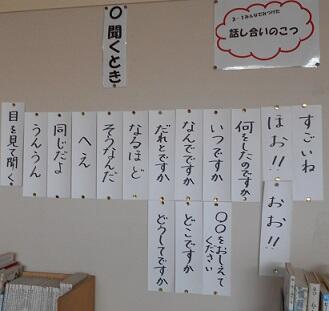 2-1みんなでみつけた
話し合いのこつ
○聞くとき
すごいね
ほお!!
おお!!
何をしたのですか?
いつですか
○○をおしえてください
なんでですか
どこですか
だれとですか
どうしてですか
なるほど
そうなんだ
へえ
同じだよ
うんうん
目を見て聞く